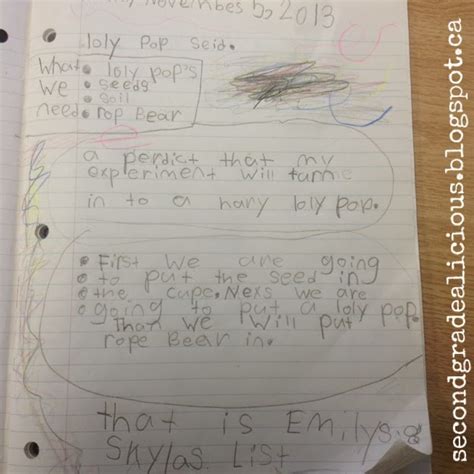 Novembes 5, 2013
loly Pop seid.
What • loly pop's
we • seeds
• soil
need • rop Bear
a perdict that my
experiment will turne
in to a hary loly pop.
• First we are going
• to put the seed in
• the cupe. Nexs we are
• going to put a loly pop
Than we will put
rope Bear in.
that is Emilys
Skylas List
secondgradealicious.blogspot.ca